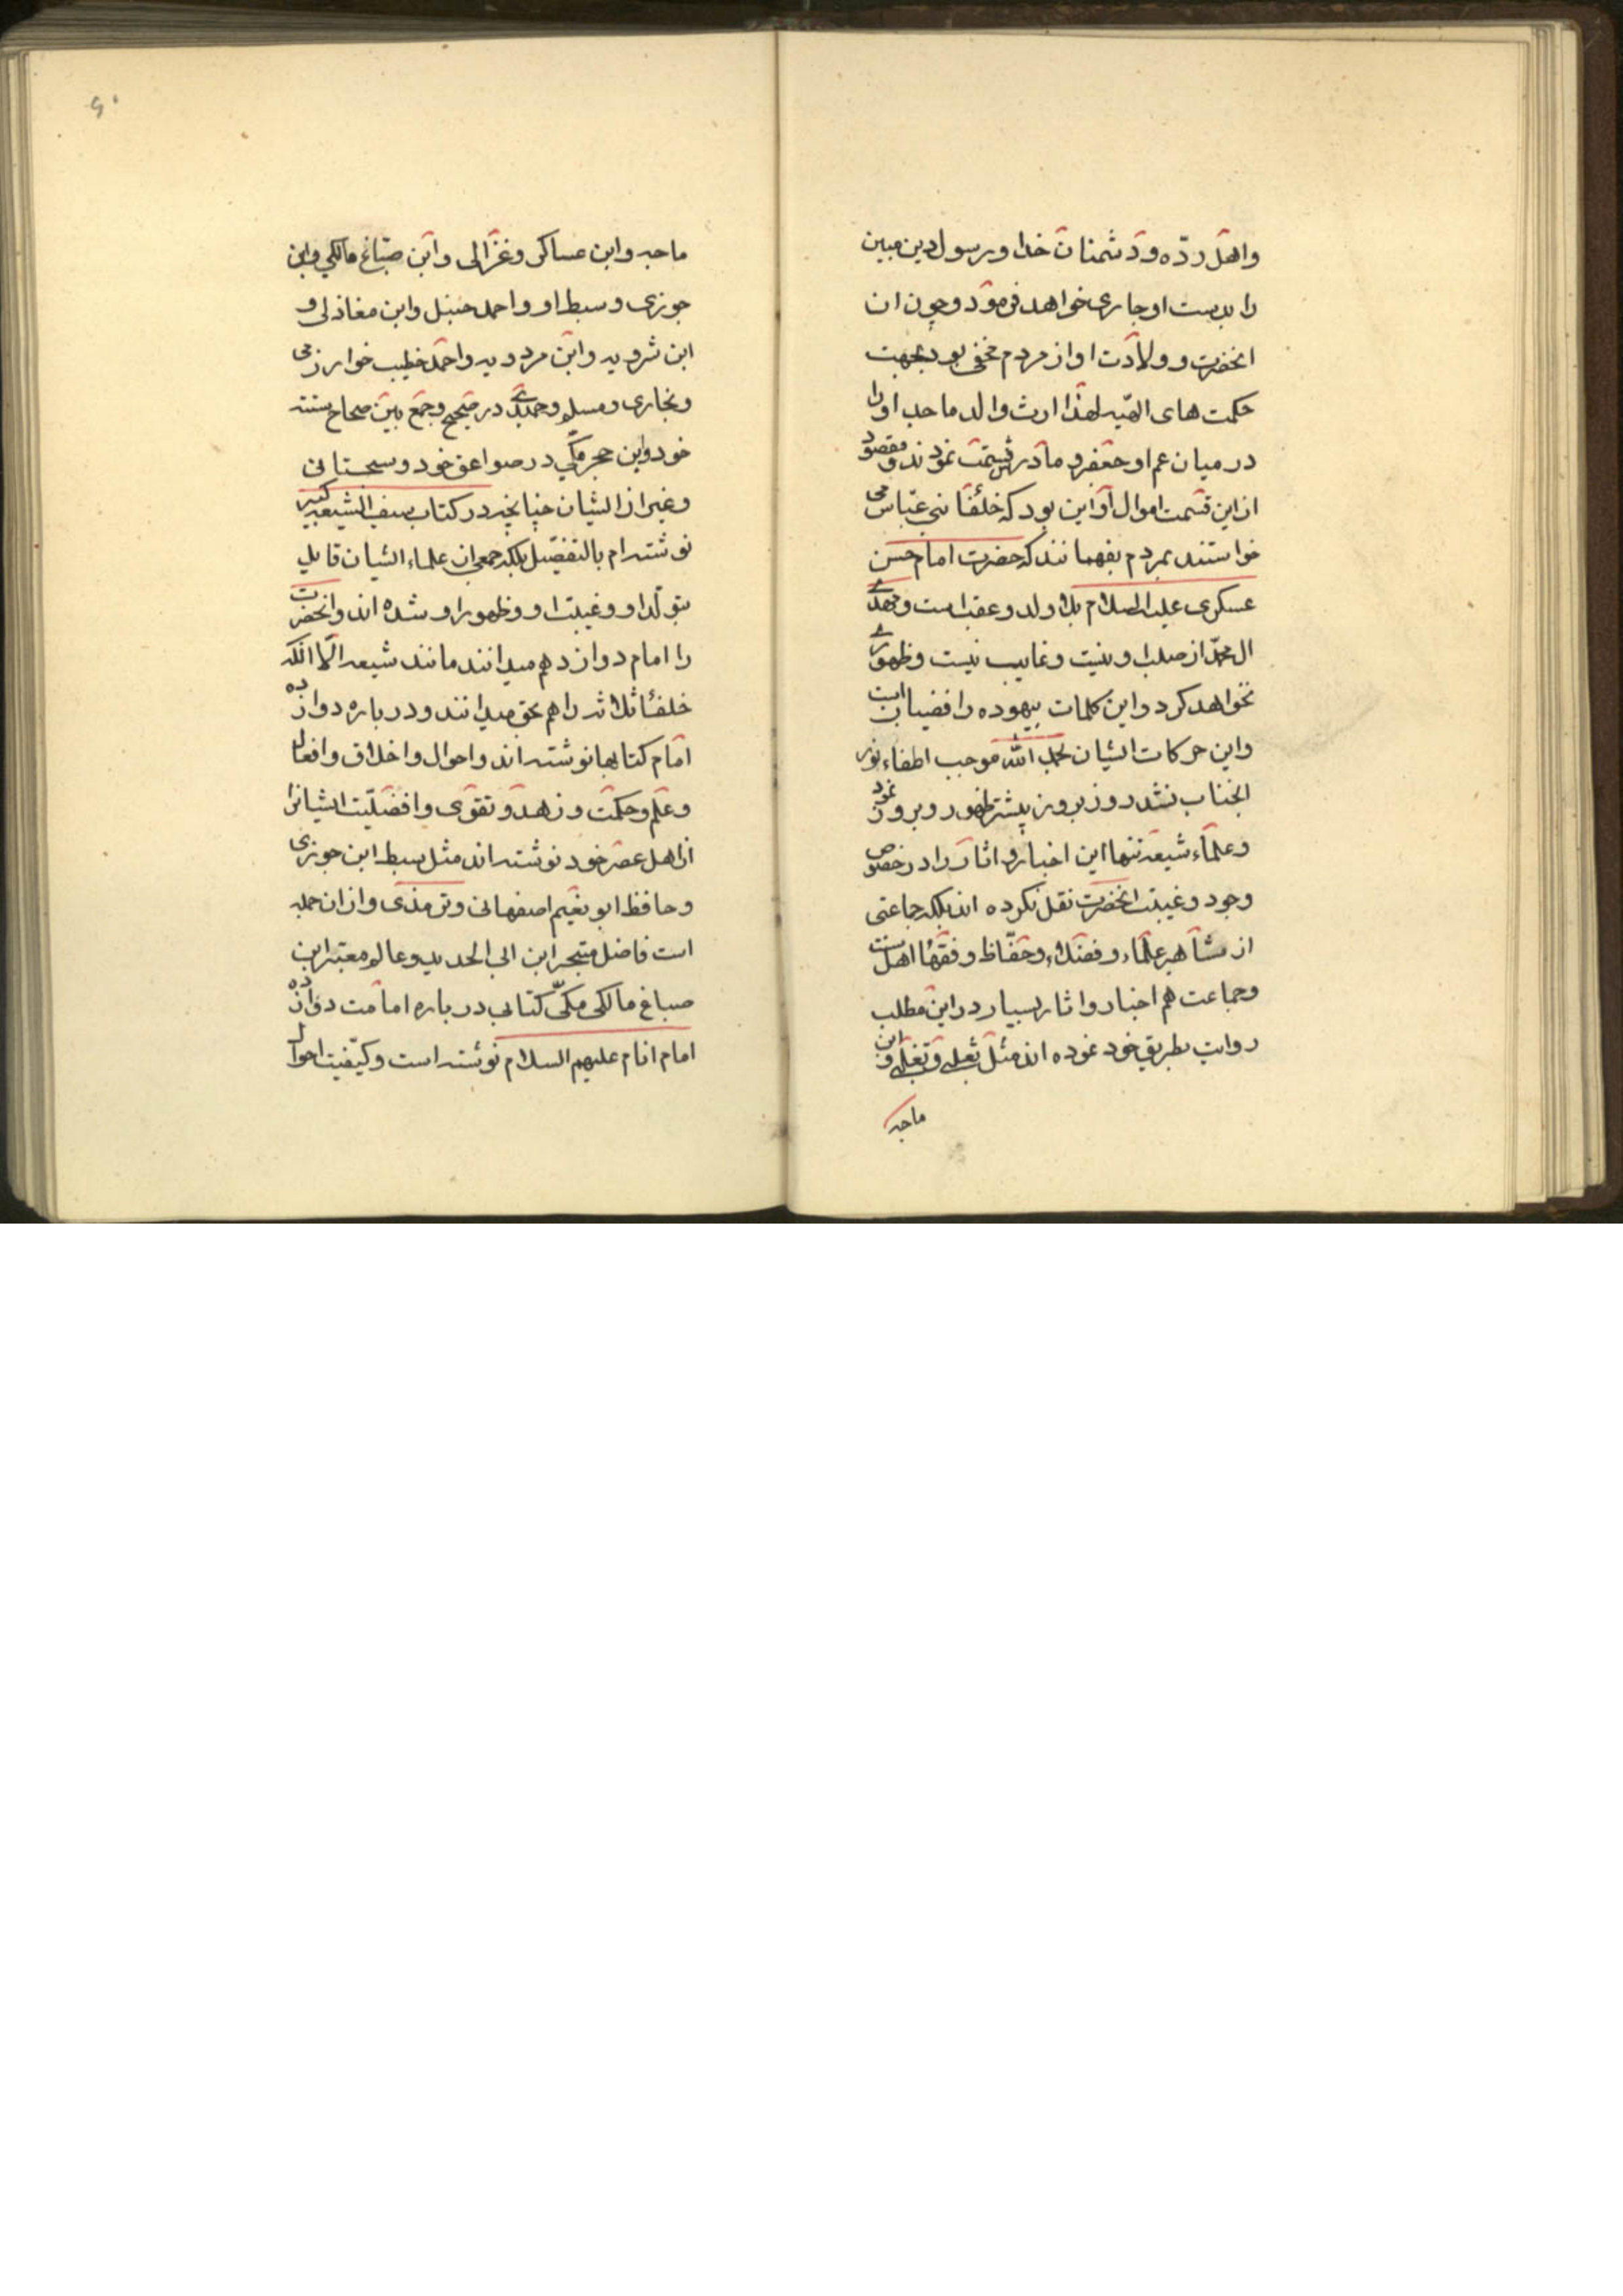 واهل ردّه ودشمنان خدا ورسول دین مبین
را بدست او جاری خواهد فرمود وچون ان
انحضرت وولادت او از مردم مخفی بود بجهت
حکمت های الهیّه لهذا ارث والد ماجد او را
در میان عم او جعفر و مادرش قسمت نمودند ومقصود
از این قسمت اموال او این بود که خلفا بنی عبّاس می
خواستند بمردم بفهمانند که حضرت امام حسن
عسکری علیه السلام بلا ولد وعقب است ومهدی
ال محمّد از صلب او نیست وغایب نیست وظهوری
نخواهد کرد واین کلمات بیهوده رافضیان است
واین حرکات ایشان بحمد الله موجب اطفاء نور
انجناب نشد روز بروز بیشتر ظهور وبروز نمود
وعلماء شیعه تنها این اخبار و اثار را در خصوص
وجود وغیبت انحضرت نقل نکرده اند بلکه جماعتی
از مشاهیر علماء وفضلاء وحفّاظ وفقها اهل سنت
وجماعت هم اخبار واثار بسیار در این مطلب
روایت بطریق خود نموده اند مثل ثعلبی و وابن
ماجه
۶۰
ماجه وابن عساکر وغزالی وابن صبّاغ مالکی وابن
جوزی وسبط او واحمد حنبل وابن مغازلی و
ابن شرویه وابن مردویه واحمد خطیب خوارزمی
وبخاری ومسلم وحمیدی در صحیح وجمع بین صحاح سته
خود وابن حجر مکّی در صواعق خود وسجستانی
وغیر از ایشان چنانچه در کتاب سیف الشیعه کبیر
نوشته ام بالتفضیل بلکه جمعی از علماء ایشان قایل
بتولّد او وغیبت او وظهور او شده اند وانحضرت
را امام دوازدهم میدانند مانند شیعه الّا انکه
خلفاُ ثلاثه را هم بحق میدانند ودر باره دوازده
امام کتابها نوشته اند واحوال واخلاق وافعال
وعلم وحکمت وزهد وتقوی وافضلیّت ایشانرا
از اهل عصر خود نوشته اند مثل سبط ابن جوزی
وحافظ ابو نعیم اصفهانی وترمذی واز ان جمله
است فاضل متبحر ابن ابی الحدید وعالم معتبر ابن
صباغ مالکی مکّی کتابی در باره امامت دوازده
امام انام علیهم السلام نوشته است وکیّفیت احوال